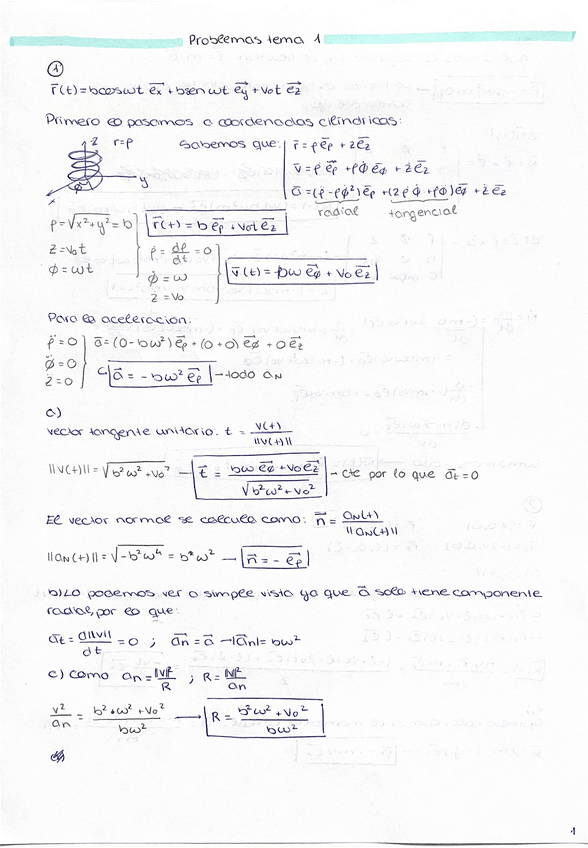 Problemas tema 1
①
r̄(t) = bcoswt e⃗x + bsenwt e⃗y + vot e⃗z
Primero lo pasamos a coordenadas cilíndricas:
z r=ρ
y
x
Sabemos que:
r̄ = ρe̅ρ + ze̅z
v̄ = ρ̇ e⃗ρ + ρϕ̇e̅ϕ + że̅z
ā = (ρ̈ - ρϕ̇²)e̅ρ + (2ρ̇ϕ̇ + ρϕ̈)e̅ϕ + z̈e̅z
radial tangencial
ρ = √x²+y² = b
z = vot
ϕ = wt
r⃗(t) = b e⃗ρ + vot e⃗z
ρ̇ = dρ/dt = 0
ϕ̇ = ω
ż = vo
v⃗(t) = bω e⃗ϕ + vo e⃗z
Para la aceleracion:
ρ̈ = 0
ϕ̈ = 0
z̈ = 0
ā = (0 - bω²) e⃗ρ + (0+0) e⃗ϕ + 0 e⃗z
a⃗ = -bω² e⃗ρ → todo aN
a)
vector tangente unitario: t = v(t)/||v(t)||
||v(t)|| = √b²ω² + vo² → t⃗ = bω e⃗ϕ + vo e⃗z / √b²ω² + vo² → cte por lo que a̅t = 0
El vector normal se calcula como: n⃗ = aN(t)/||aN(t)||
||aN(t)|| = √-b²ω⁴ = b*ω² → n⃗ = -e⃗ρ
b) Lo podemos ver a simple vista ya que a⃗ solo tiene componente
radial, por lo que:
a̅t = d||v||/dt = 0 ; a̅n = a̅ → |a̅n| = bω²
c) Como an = |v|²/R ; R = |v|²/an
v²/an = b²*ω² + vo²/bω² → R = b²ω² + vo²/bω²
1